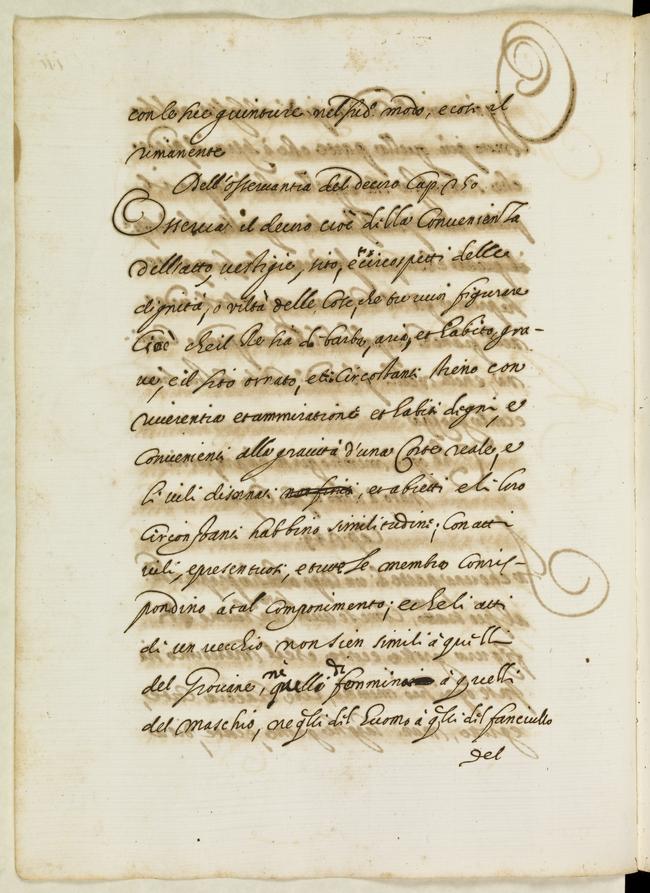 con le sue giunture nel sud.º modo, e così il
rimanente
Dell'osservantia del decoro Cap. 250
Osserva il decoro cioè della Convenienza
dell'atto, vestigie, sito, e circospetti delle
dignità, o viltà delle Cose, che tu vuoi figurare
Cioè che il Re sia di barba, aria, et habito, gra-
ve, e il sito ornato, e li Circostanti stieno con
riverentia et ammiratione et habiti degni, e
Convenienti alla gravità d'una Corte reale, e
li vili disornati, et abietti e li loro
Circonstanti habbino similitudine; Con atti
vili, e presentuosi, e tutte le membra Corris-
pondino à tal Componimento; e che li atti
di un vecchio non sien simili à quelli
del Giovane, nè quelli di femmina à quelli
del maschio, ne q̃lli del huomo à q̃lli del fanciullo
del